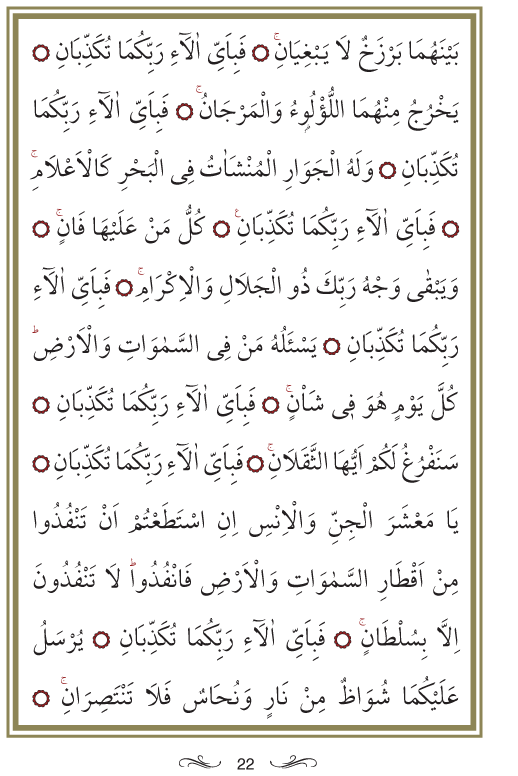 بَيْنَهُمَا بَرْزَخٌ لَا يَبْغِيَانِۚ ۝ فَبِاَيِّ اٰلَٓاءِ رَبِّكُمَا تُكَذِّبَانِ ۝
يَخْرُجُ مِنْهُمَا اللُّؤْلُؤُ۬ وَالْمَرْجَانُۚ ۝ فَبِاَيِّ اٰلَٓاءِ رَبِّكُمَا
تُكَذِّبَانِ ۝ وَلَهُ الْجَوَارِ الْمُنْشَاٰتُ فِي الْبَحْرِ كَالْاَعْلَامِۚ
۝ فَبِاَيِّ اٰلَٓاءِ رَبِّكُمَا تُكَذِّبَانِ۟ ۝ كُلُّ مَنْ عَلَيْهَا فَانٍۚ ۝
وَيَبْقٰى وَجْهُ رَبِّكَ ذُو الْجَلَالِ وَالْاِكْرَامِۚ ۝ فَبِاَيِّ اٰلَٓاءِ
رَبِّكُمَا تُكَذِّبَانِ ۝ يَسْـَٔلُهُ مَنْ فِي السَّمٰوَاتِ وَالْاَرْضِۜ
كُلَّ يَوْمٍ هُوَ ف۪ي شَاْنٍۚ ۝ فَبِاَيِّ اٰلَٓاءِ رَبِّكُمَا تُكَذِّبَانِ ۝
سَنَفْرُغُ لَكُمْ اَيُّهَا الثَّقَلَانِۚ ۝ فَبِاَيِّ اٰلَٓاءِ رَبِّكُمَا تُكَذِّبَانِ ۝
يَا مَعْشَرَ الْجِنِّ وَالْاِنْسِ اِنِ اسْتَطَعْتُمْ اَنْ تَنْفُذُوا
مِنْ اَقْطَارِ السَّمٰوَاتِ وَالْاَرْضِ فَانْفُذُواۜ لَا تَنْفُذُونَ
اِلَّا بِسُلْطَانٍۚ ۝ فَبِاَيِّ اٰلَٓاءِ رَبِّكُمَا تُكَذِّبَانِ ۝ يُرْسَلُ
عَلَيْكُمَا شُوَاظٌ مِنْ نَارٍ وَنُحَاسٌ فَلَا تَنْتَصِرَانِۚ ۝
22